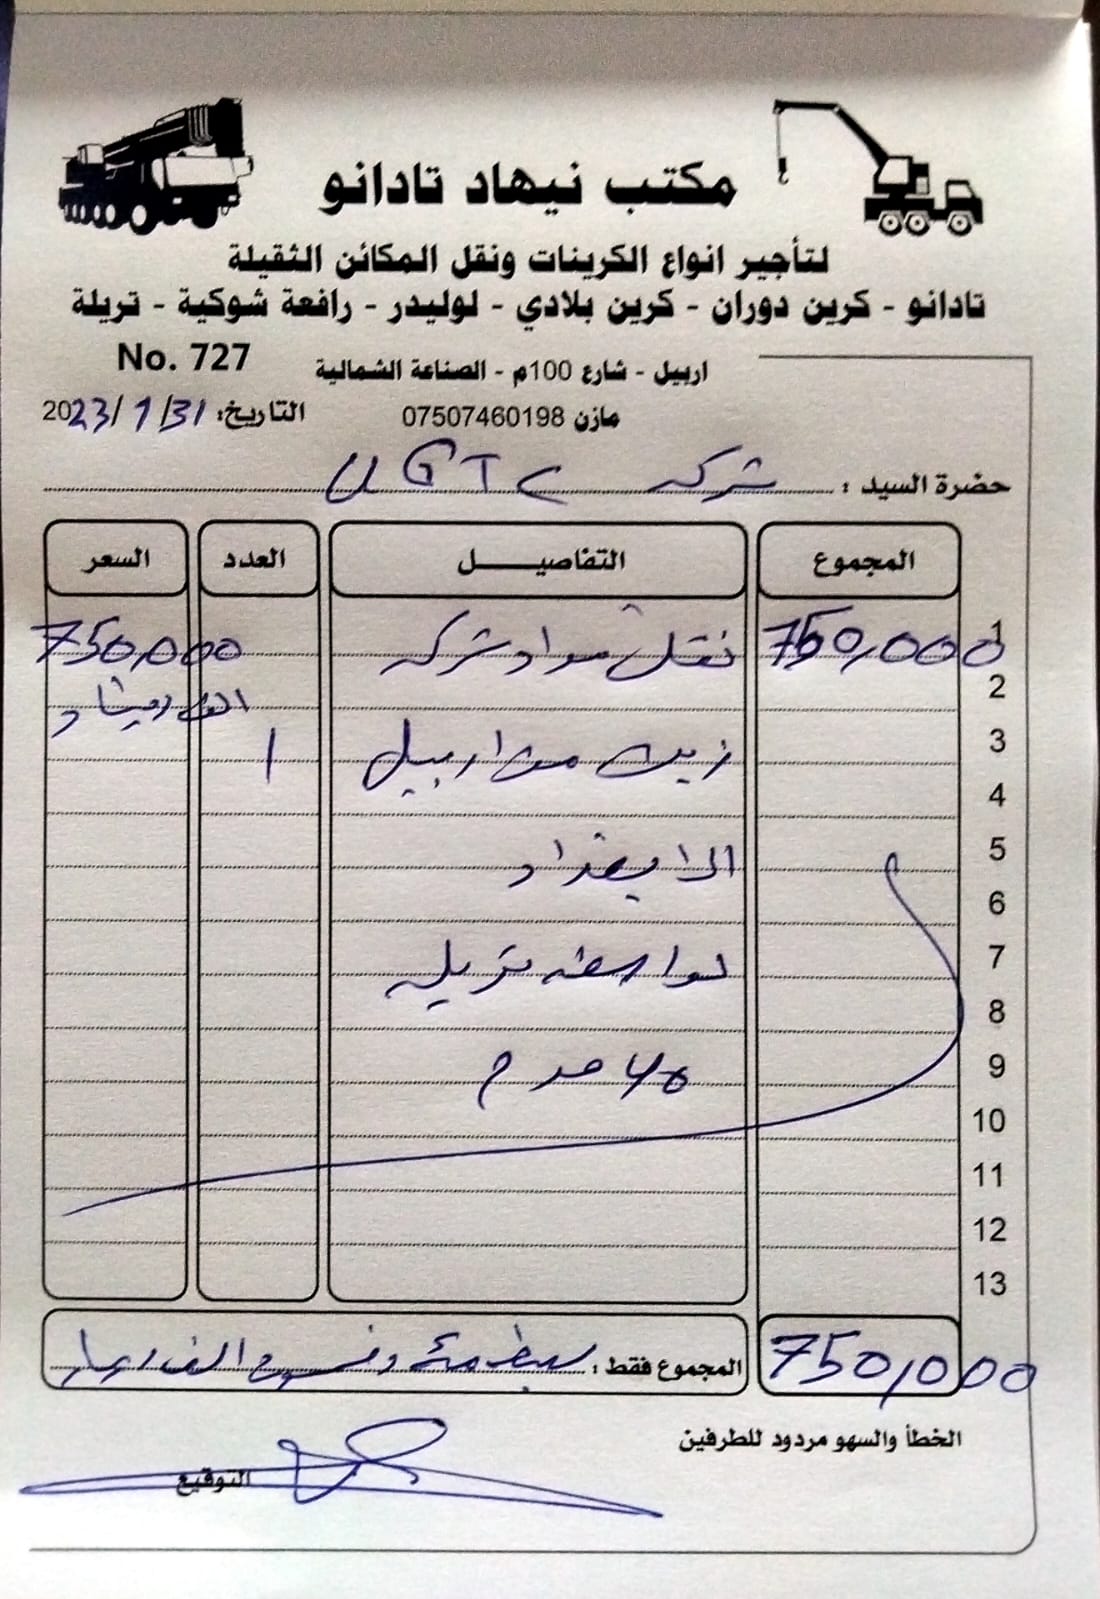 مكتب نيهاد تادانو
لتأجير انواع الكرينات ونقل المكائن الثقيلة
تادانو - كرين دوران - كرين بلادي - لوليدر - رافعة شوكية - تريلة
No. 727
اربيل - شارع 100م - الصناعة الشمالية
التاريخ: 2023/1/31
مازن 07507460198
حضرة السيد : شركه UGTC
المجموع التفاصيل العدد السعر
1 750,000 نقل مواد شركه 750,000
2 الف دينار
3 زين من اربيل 1
4
5 الا بغداد
6
7 تريله
8
9 40 قدم
10
11
12
13
المجموع فقط : سبع مئة وخمسون الف دينار 750,000
الخطأ والسهو مردود للطرفين
التوقيع